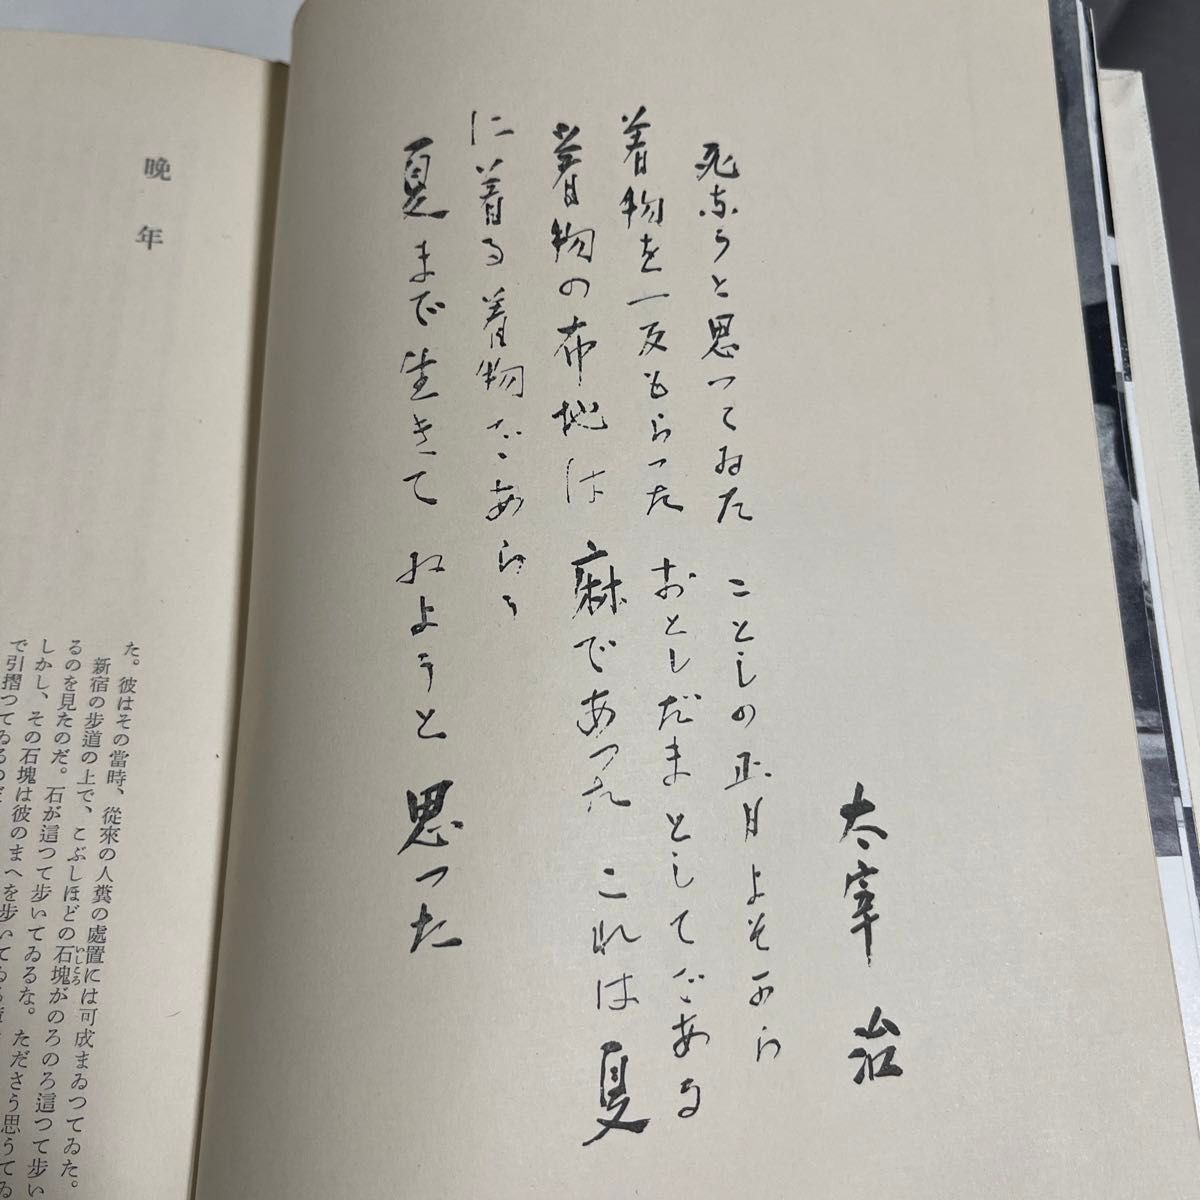 太宰 治
死なうと思つてゐた ことしの正月 よそから
着物を一反もらつた おとしだまとしてである
着物の布地は 麻であつた これは夏
に着る着物であらう
夏まで生きて ゐようと思つた
晩年
た。彼はその當時、從來の人糞の處置には可成まゐつてゐた。
新宿の歩道の上で、こぶしほどの石塊がのろのろ這つて歩い
いしころ
るのを見たのだ。石が這つて歩いてゐるな。たださう思うてゐ
しかし、その石塊は彼のまへを歩いてゐる
で引摺つてゐるのだ